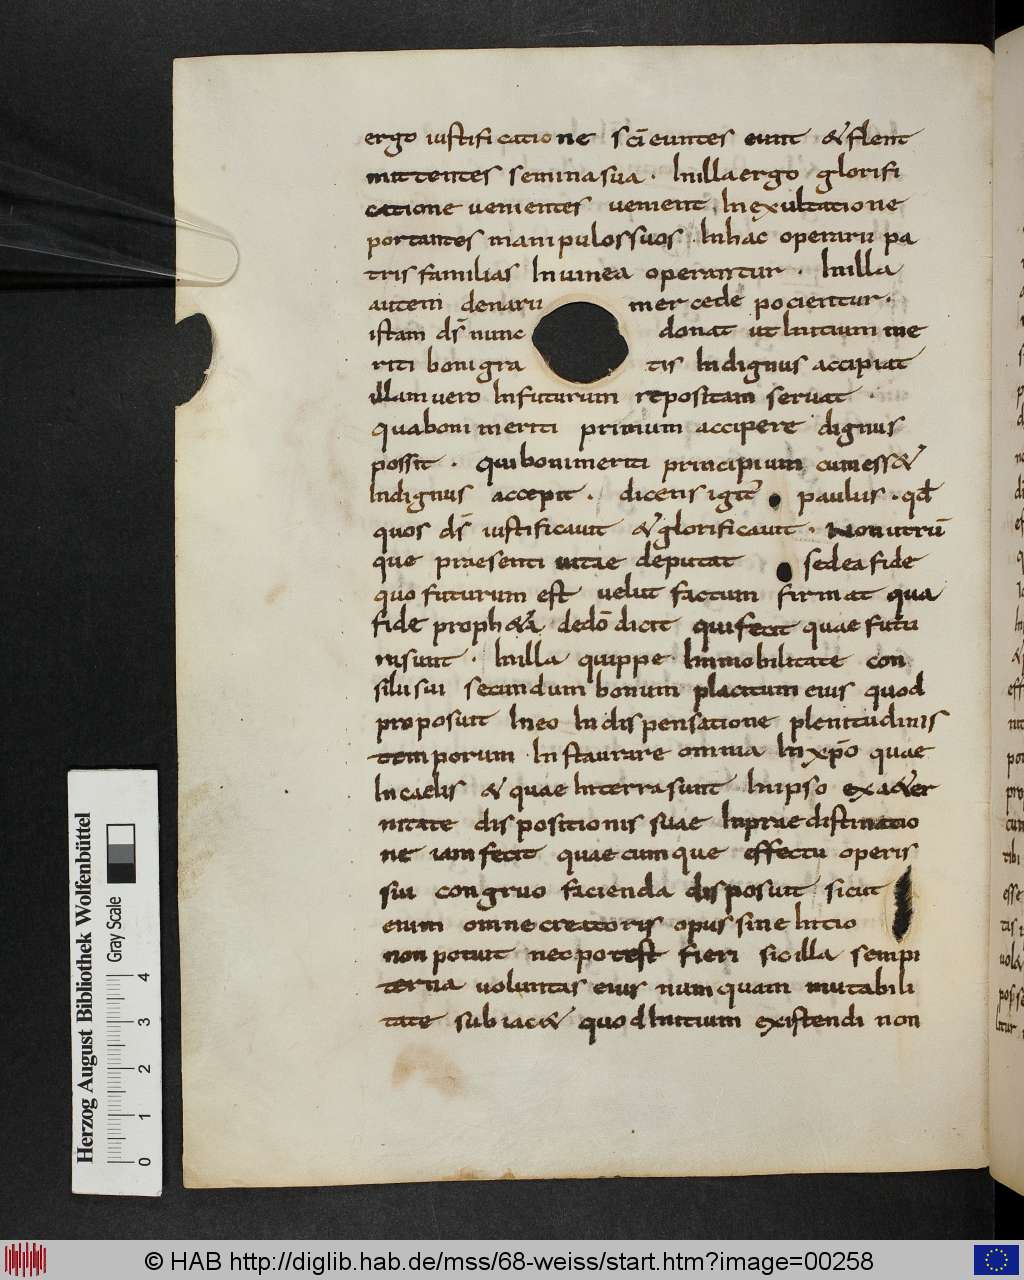 ergo iustificatione sc̄i euntes eunt & flent
mittentes semina sua · In illa ergo glorifi
catione uenientes uenient In exultatione
portantes manipulos suos · In hac operarii pa
tris familias In uinea operantur · In illa
autem denarii mercede pocientur ·
istam d̄s nunc donat ut Initium me
riti boni gratis Indignus accipiat
illam uero In futurum repositam seruat ·
qua boni meriti primium accipere dignus
possit · qui boni meriti principium cum ess&
Indignus accepit · dicens igit̄ paulus · qd̄
quos d̄s iustificauit & glorificauit · Non utrū
que praesenti uitae deputat sed ea fide
quo futurum est uelut factum firmat qua
fide proph&a de dō dicit qui fecit quae futu
ra sunt · In illa quippe Inmobilitate con
silii sui secundum bonum placitum eius quod
proposuit In eo In dispensatione plenitudinis
temporum Instaurare omnia In xp̄o quae
In caelis & quae In terra sunt In ipso ex a&er
nitate dispositionis suae In praedistinatio
ne iam fecit quaecumque effectu operis
sui congruo facienda disposuit sicut
enim omne creatoris opus sine Initio
non potuit nec potest fieri sic illa sempi
terna uoluntas eius numquam mutabili
tate subiac& quod Initium existendi non
Herzog August Bibliothek Wolfenbüttel
Gray Scale
0 1 2 3 4
© HAB http://diglib.hab.de/mss/68-weiss/start.htm?image=00258